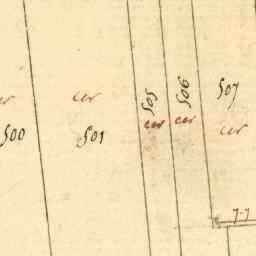 cer
500
cer
501
505
cer
506
cer
507
cer
7.7